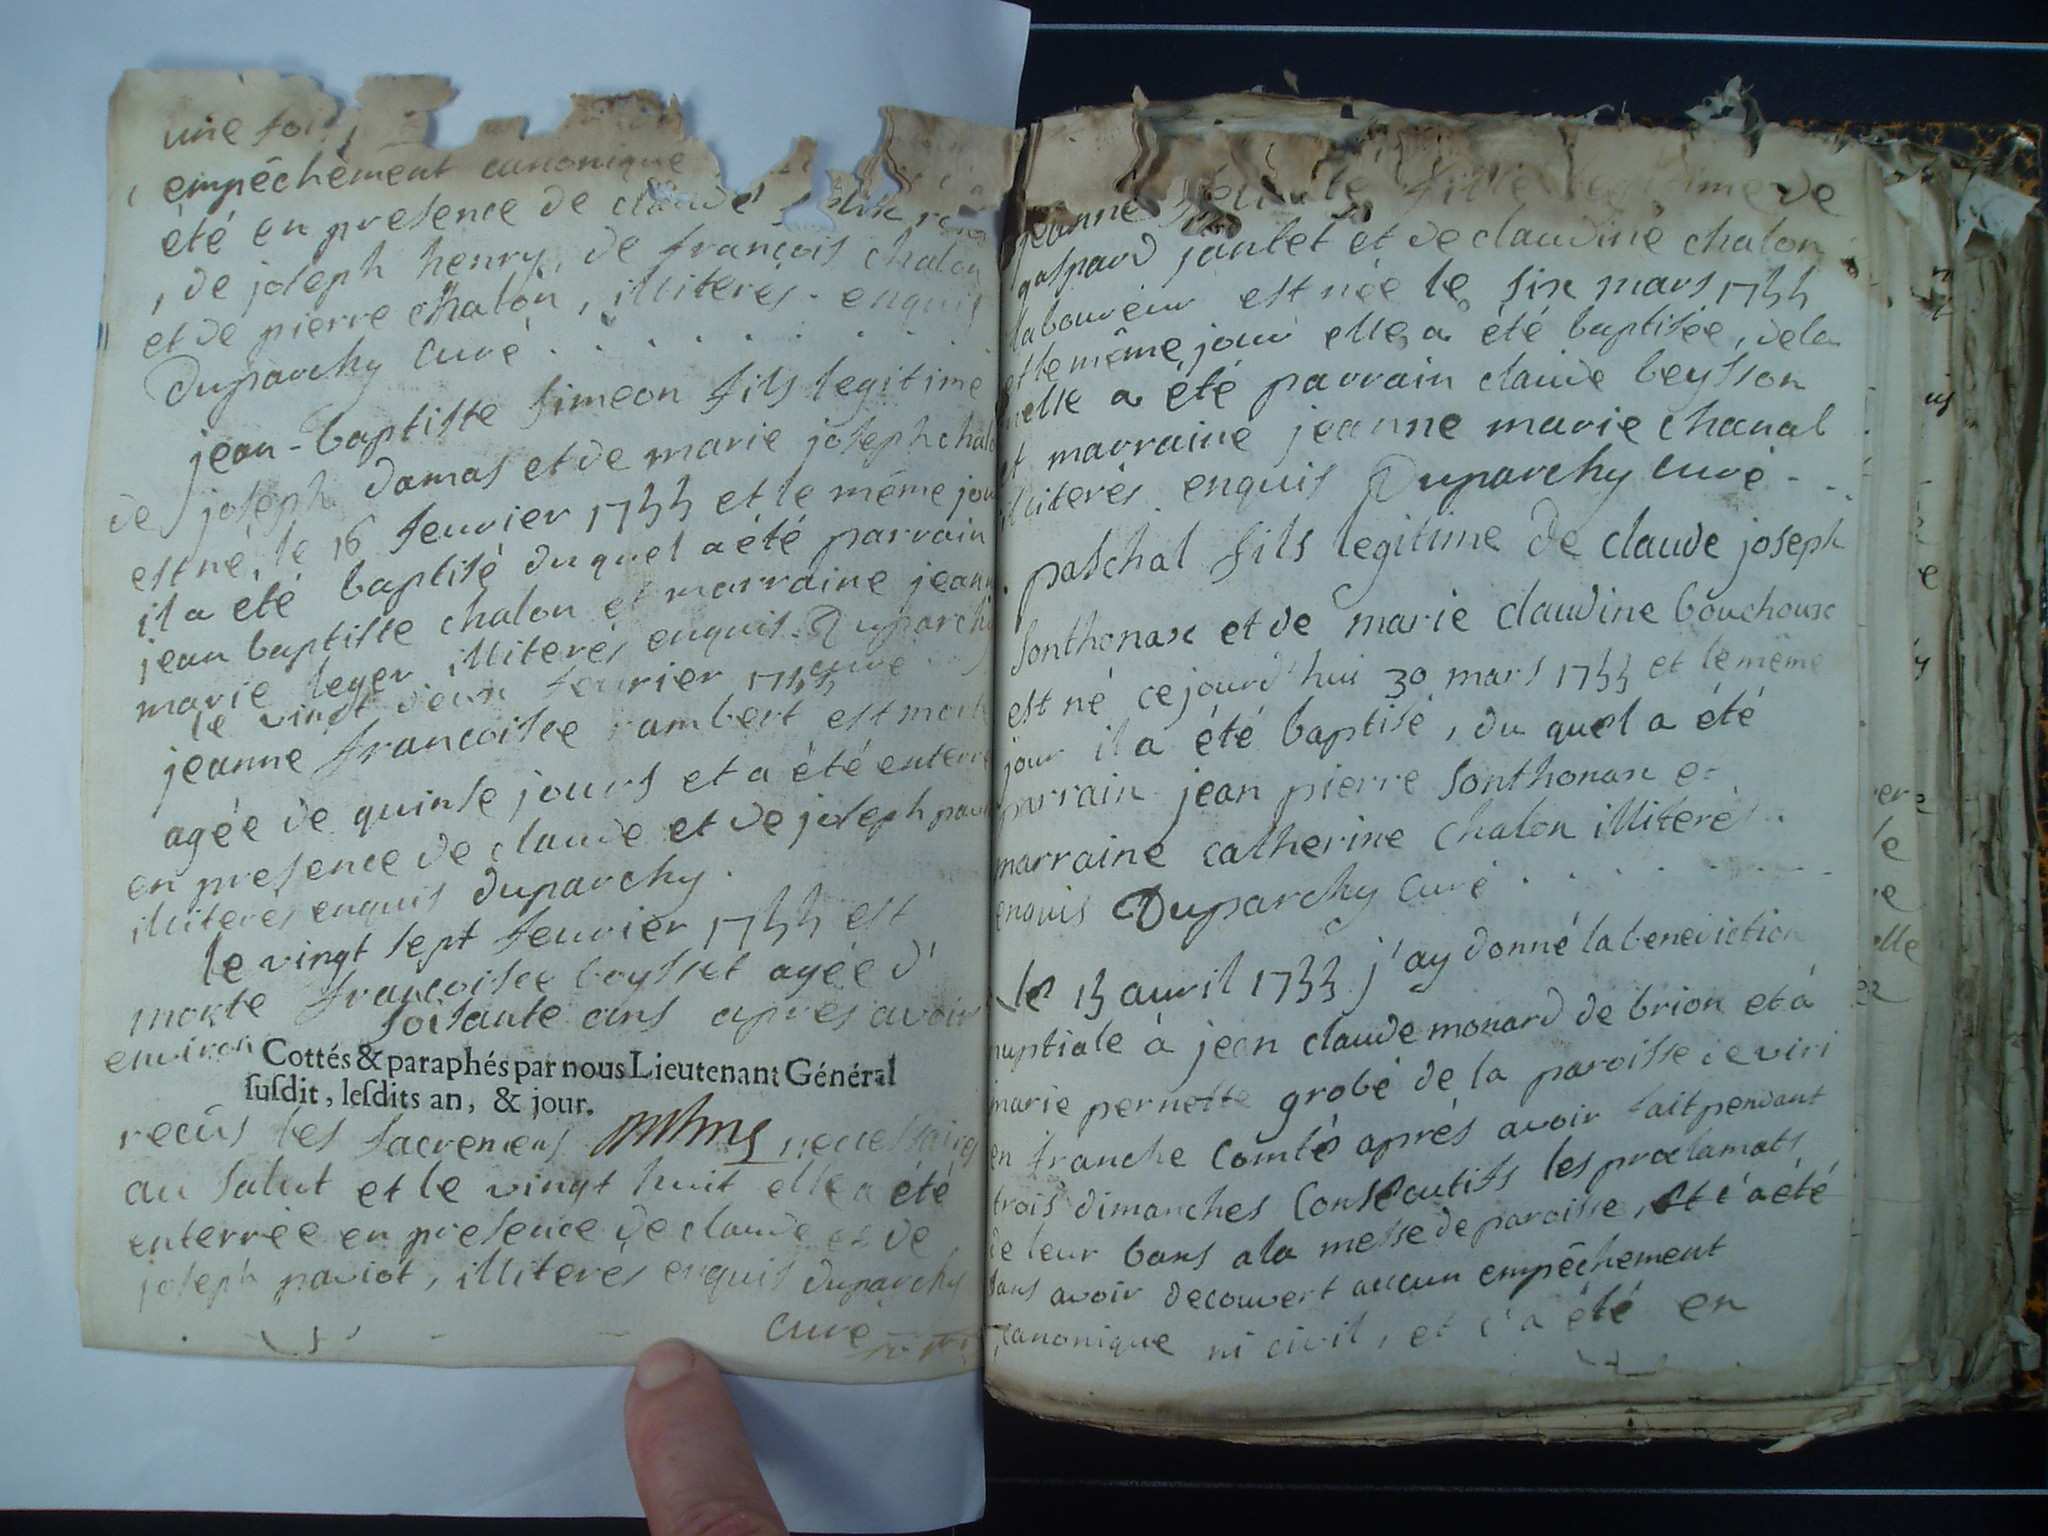 une foi
empêchement canonique
été en presence de claude
, de joseph henry, de françois chalon
et de pierre chalon, illiterés enquis
Duparchy curé
jean-baptiste simeon fils legitime
de joseph Damas et de marie joseph chalo
est né, le 16 feuvrier 1755 et le même jou
il a été baptisé duquel a été parrain
jean baptiste chalon et marraine jeann
marie leger illiterés enquis. Duparchy
curé
le vingt deux feuvrier 1755
jeanne françoise rambert est morte
agée de quinse jours et a été enterré
en presence de claude et de joseph pavi
illiterés enquis duparchy.
le vingt sept feuvrier 1755 est
morte françoise beysset agée d'
environ soisante ans aprés avoir
Cottés & paraphés par nous Lieutenant Général
ſuſdit, leſdits an, & jour.
recûs les sacremens necessaires
au salut et le vingt huit elle a été
enterrée en presence de claude et de
joseph paviot, illiterés enquis duparchy
curé
jeanne fille legitime de
gaspard jantet et de claudine chalon
laboureur est née le six mars 1755
et le même jour elle a été baptisée, de la
quelle a été parrain claude beysson
et marraine jeanne marie chanal
illiterés enquis Duparchy curé
paschal fils legitime de claude joseph
sonthonax et de marie claudine bouchoux
est né ce jourd'hui 30 mars 1755 et le même
jour il a été baptisé, du quel a été
parrain jean pierre sonthonax et
marraine catherine chalon illiterés.
enquis Duparchy curé
le 15 auvril 1755 j'ay donné la benediction
nuptiale à jean claude monard de brion et à
marie pernette grobé de la paroisse de viri
en franche Comté aprés avoir fait pendant
trois dimanches Consecutifs les proclamats
de leur bans a la messe de paroisse, et c'a été
sans avoir decouvert aucun empêchement
canonique ni civil, et c'a été en